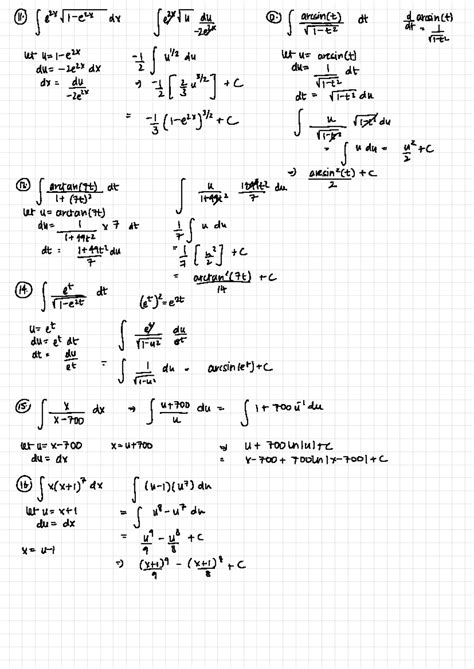 11. ∫ e^{2x} √(1-e^{2x}) dx
let u = 1-e^{2x}
du = -2e^{2x} dx
dx = du/(-2e^{2x})
∫ e^{2x} √u du/(-2e^{2x})
-1/2 ∫ u^{1/2} du
⇒ -1/2 [2/3 u^{3/2}] + C
= -1/3 (1-e^{2x})^{3/2} + C
∫ arcsin(t)/√(1-t²) dt
d/dt arcsin(t) = 1/√(1-t²)
let u = arcsin(t)
du = 1/√(1-t²) dt
dt = √(1-t²) du
∫ u/√(1-t²) √(1-t²) du
= ∫ u du = u²/2 + C
⇒ arcsin²(t)/2 + C
∫ arctan(7t)/(1+(7t)²) dt
let u = arctan(7t)
du = 1/(1+49t²) × 7 dt
dt = (1+49t²)/7 du
∫ u/(1+49t²) (1+49t²)/7 du
1/7 ∫ u du
= 1/7 [u²/2] + C
= arctan²(7t)/14 + C
14. ∫ e^t/√(1-e^{2t}) dt
(e^t)² = e^{2t}
u = e^t
du = e^t dt
dt = du/e^t
∫ e^t/√(1-u²) du/e^t
= ∫ 1/√(1-u²) du = arcsin(e^t) + C
15. ∫ x/(x-700) dx → ∫ (u+700)/u du = ∫ 1 + 700u^{-1} du
let u = x-700 x = u+700
du = dx
⇒ u + 700 ln|u| + C
= x-700 + 700 ln|x-700| + C
16. ∫ x(x+1)^7 dx
let u = x+1
du = dx
x = u-1
∫ (u-1)(u^7) du
= ∫ u^8 - u^7 du
= u^9/9 - u^8/8 + C
⇒ (x+1)^9/9 - (x+1)^8/8 + C